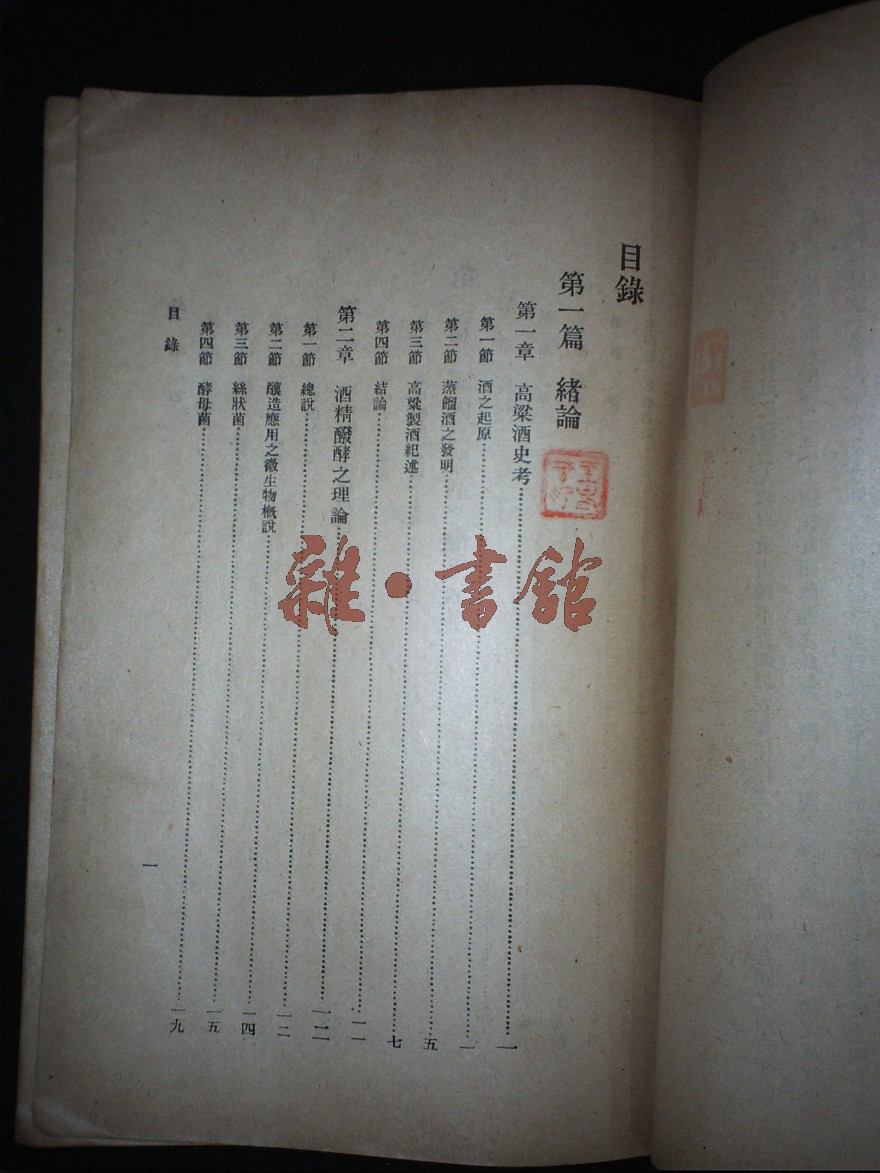 目錄
第一篇 緒論
第一章 高粱酒史考……一
第一節 酒之起原……一
第二節 蒸餾酒之發明……五
第三節 高粱製酒紀述……七
第四節 結論……一一
第二章 酒精醱酵之理論……一二
第一節 總說……一二
第二節 釀造應用之微生物概說……一四
第三節 絲狀菌……一五
第四節 酵母菌……一九
目錄
一
雜·書館